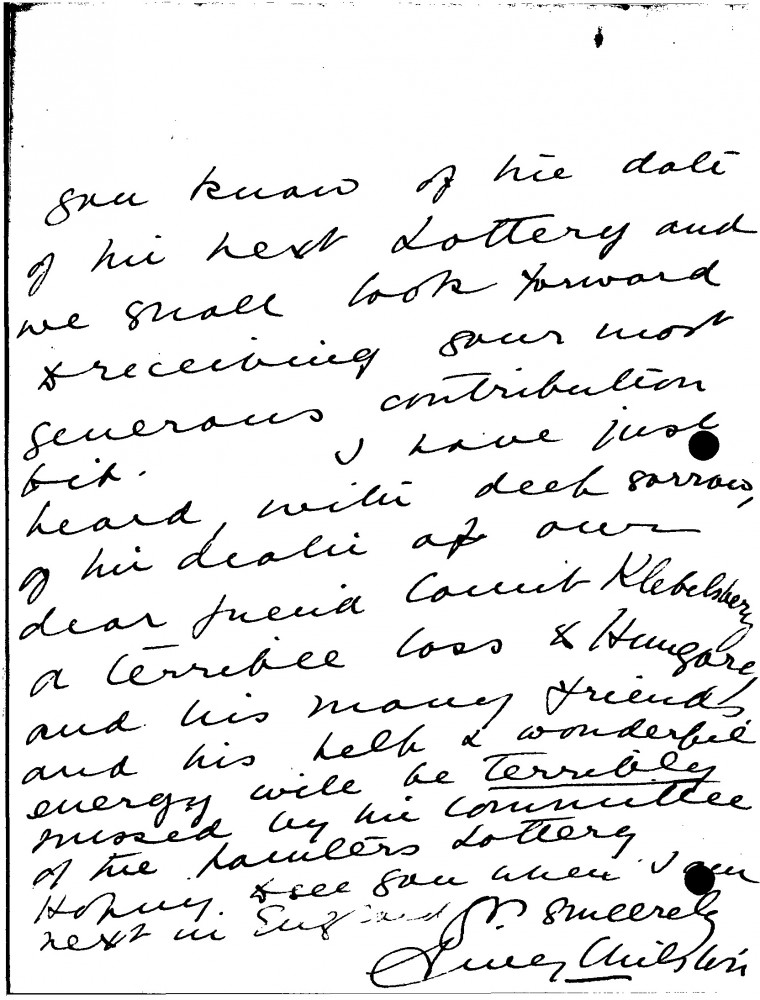 you know of the date
of the next Lottery and
we shall look forward
to receiving your most
generous contribution
to it. I have just
heard, with deep sorrow,
of the death of our
dear friend Count Klebelsberg
a terrible loss to Hungary
and his many friends
and his help & wonderful
energy will be terribly
missed by the committee
of the Painters Lottery
Hoping to see you when I am
next in England
Yrs. sincerely
Chilston